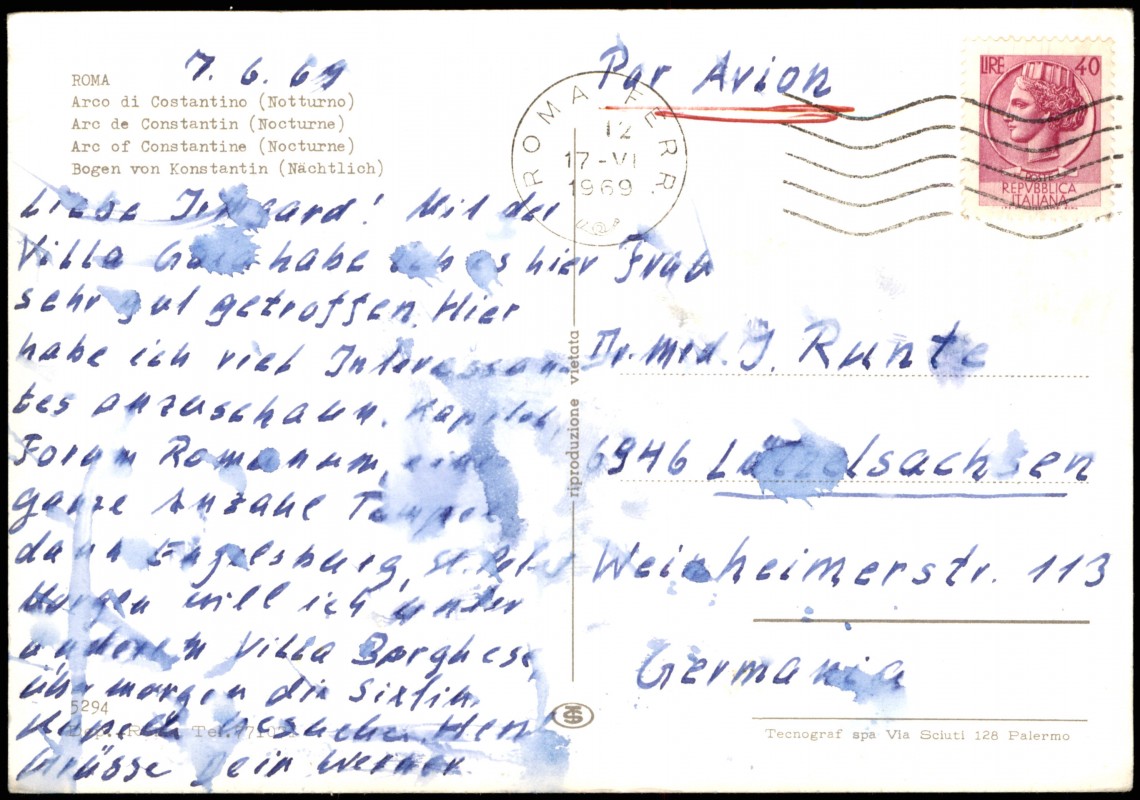 7. 6. 69
ROMA
Arco di Costantino (Notturno)
Arc de Constantin (Nocturne)
Arc of Constantine (Nocturne)
Bogen von Konstantin (Nächtlich)
Liebe Irmgard! Mit der
Villa habe ich es hier
sehr gut getroffen. Hier
habe ich viel Interessan
tes anzuschaun. Kapitol,
Forum Romanum, eine
ganze Anzahl
dann Engelsburg, St. Peter
Morgen will ich unter
anderem Villa Borghese,
übermorgen die Sixtin.
Kapelle besuchen.
Grüsse Dein Werner
5294
riproduzione vietata
Par Avion
ROMA FERR.
12
17-VI
1969
LIRE 40
POSTE
REPVBBLICA
ITALIANA
Frau
Dr. med. J. Runte
6946 Lützelsachsen
Weinheimerstr. 113
Germania
Tecnograf spa Via Sciuti 128 Palermo